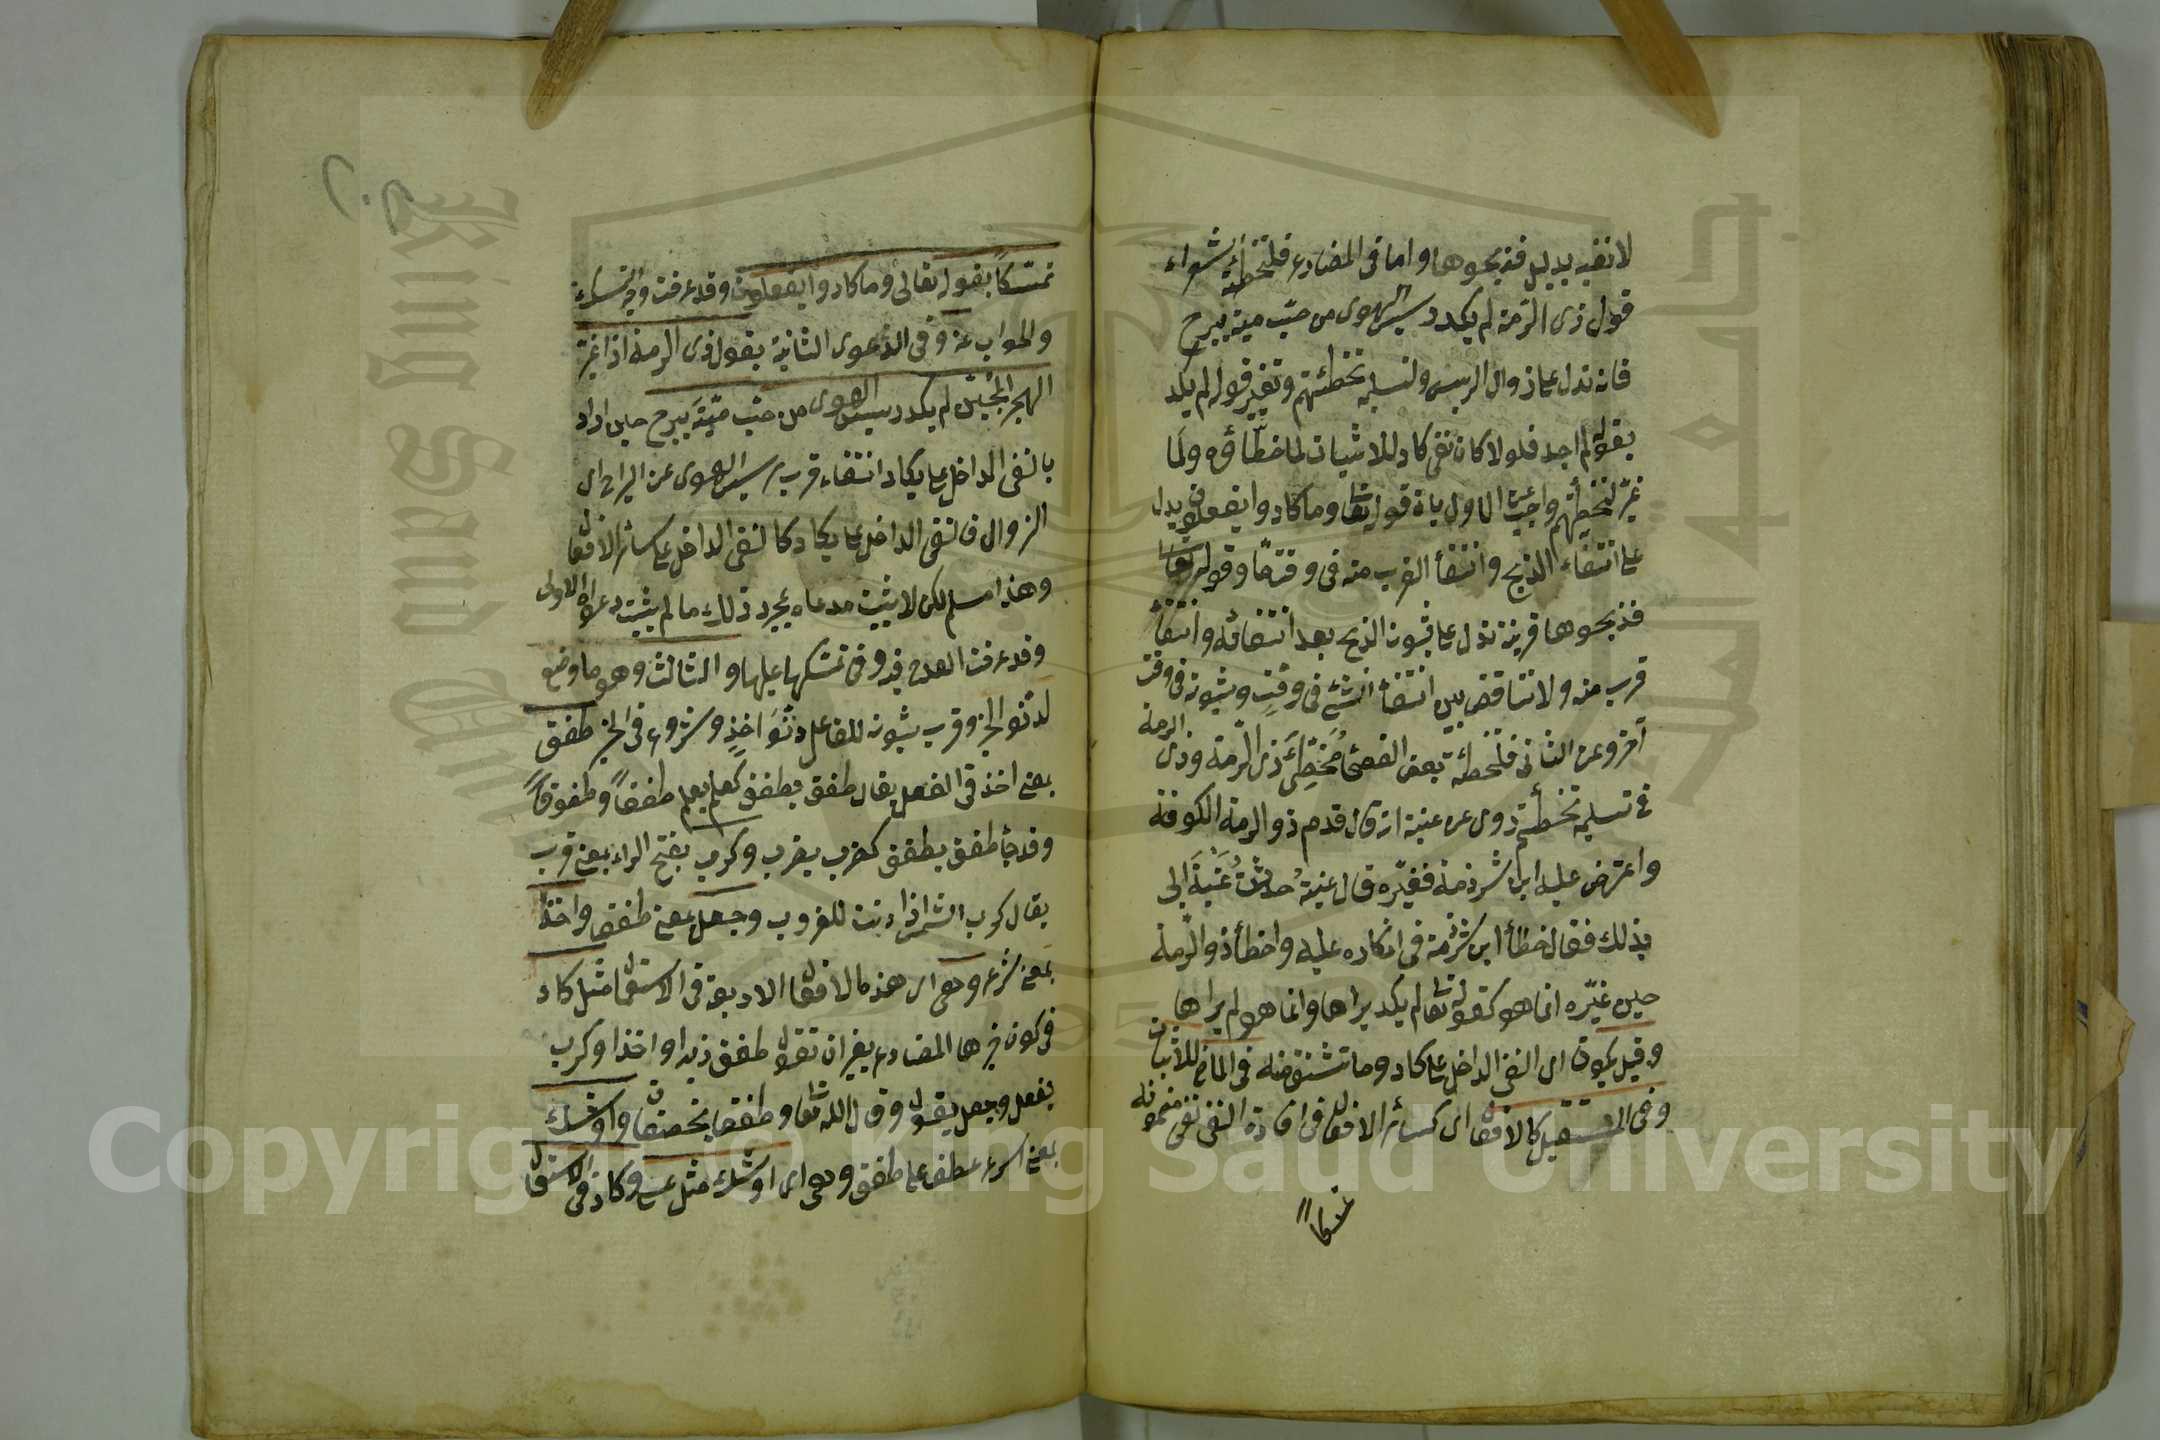 لا نفيه بدليل فذبحوها واما فى المضارع فلتخطئة الشعراء
قول ذى الرّمة لم يكد رسيس الهوى من حبّ مية يبرح
فانه تدل على زوال الرسيس ولتسليمه تخطئتهم وتغيير قوله لم يكد
بقوله لم اجد فلولا كان نفى كاد للاثبات لما خطّأوه ولَما
غيّر لتخطئتهم واجيب عن الاول بان قوله تعا وما كادوا يفعلون يدل
على انتفاء الذبح وانتفاء القرب منه فى وقت مّا وقوله تعا
فذبحوها قرينة تدل على ثبوت الذبح بعد انتفائه وانتفاء
قرب منه ولا تناقض بين انتفاء الشئ فى وقتٍ وثبوته فى وقت
آخر وعن الثانى فلتخطئة بعض الفصحا مخطّئى ذى الرّمة وذى الرمة
فى تسليمه تخطئتهم روى عن عنبة انه قال قدم ذو الرمة الكوفة
واعترض عليه ابن شبرمة فغيّره قال عنبة حدثتُ عنبة ابى
بذلك فقال اخطأ ابن شبرمة فى انكاره عليه واخطأ ذو الرّمة
حين غيّره انما هو كقوله تعا لم يكد يراها وانما هو لم يراها
وقيل يكون اى النفى الداخل على كاد وما تشتق منه فى الماضى للاثبات
وفى المستقبل كالافعال اى كسائر الافعال فى افادة النفى نفى مضمونه
تمسكاً
تمسّكاً بقوله تعالى وما كادوا يفعلون وقد عرفت وجه التمسك
والجواب عنه وفى الدعوى الثانية بقول ذى الرمة اذا غيّر
الهجر المحبّين لم يكد رسيس الهوى من حبّ ميّةَ يبرح حين اراد
بالنفى الداخل على يكاد انتفاء قرب رسيس الهوى عن البراح اى
الزوال فالنفى الداخل على يكاد كالنفى الداخل على سائر الافعال
وهذا مسلم لكن لا يثبت مدعاه بمجرد ذلك ما لم يثبت دعواه الاولى
وقد عرفت القدح فيه وفى تمسكها عليها والثالث وهو ما وضع
لدنّو الخبر وقرب ثبوته للفاعل دنّوَ اخذٍ وشروع فى الخبر طفق
بمعنى اخذ فى الفعل يقال طفق يطفق كعلم يعلم طفقاً وطفوقاً
وقد جأ طفق يطفق كضرب يضرب وكرب بفتح الراء بمعنى قرب
يقال كرب الشمس اذا دنت للغروب وجعل بمعنى طفق واخذ
بمعنى شرع وهى اى هذه الافعال الاربعة فى الاستعمال مثل كاد
فى كون خبرها المضارع بغير ان تقول طفق زيد او اخذ او كرب
يفعل وجعل يقول وقال الله تعا وطفقا يخصفان واوشك
بمعنى اسرع عطف على طفق وهى اى اوشك مثل عسى وكاد فى الاستعمال
Copyright © King Saud University
King Saud University
جامعة الملك
1957